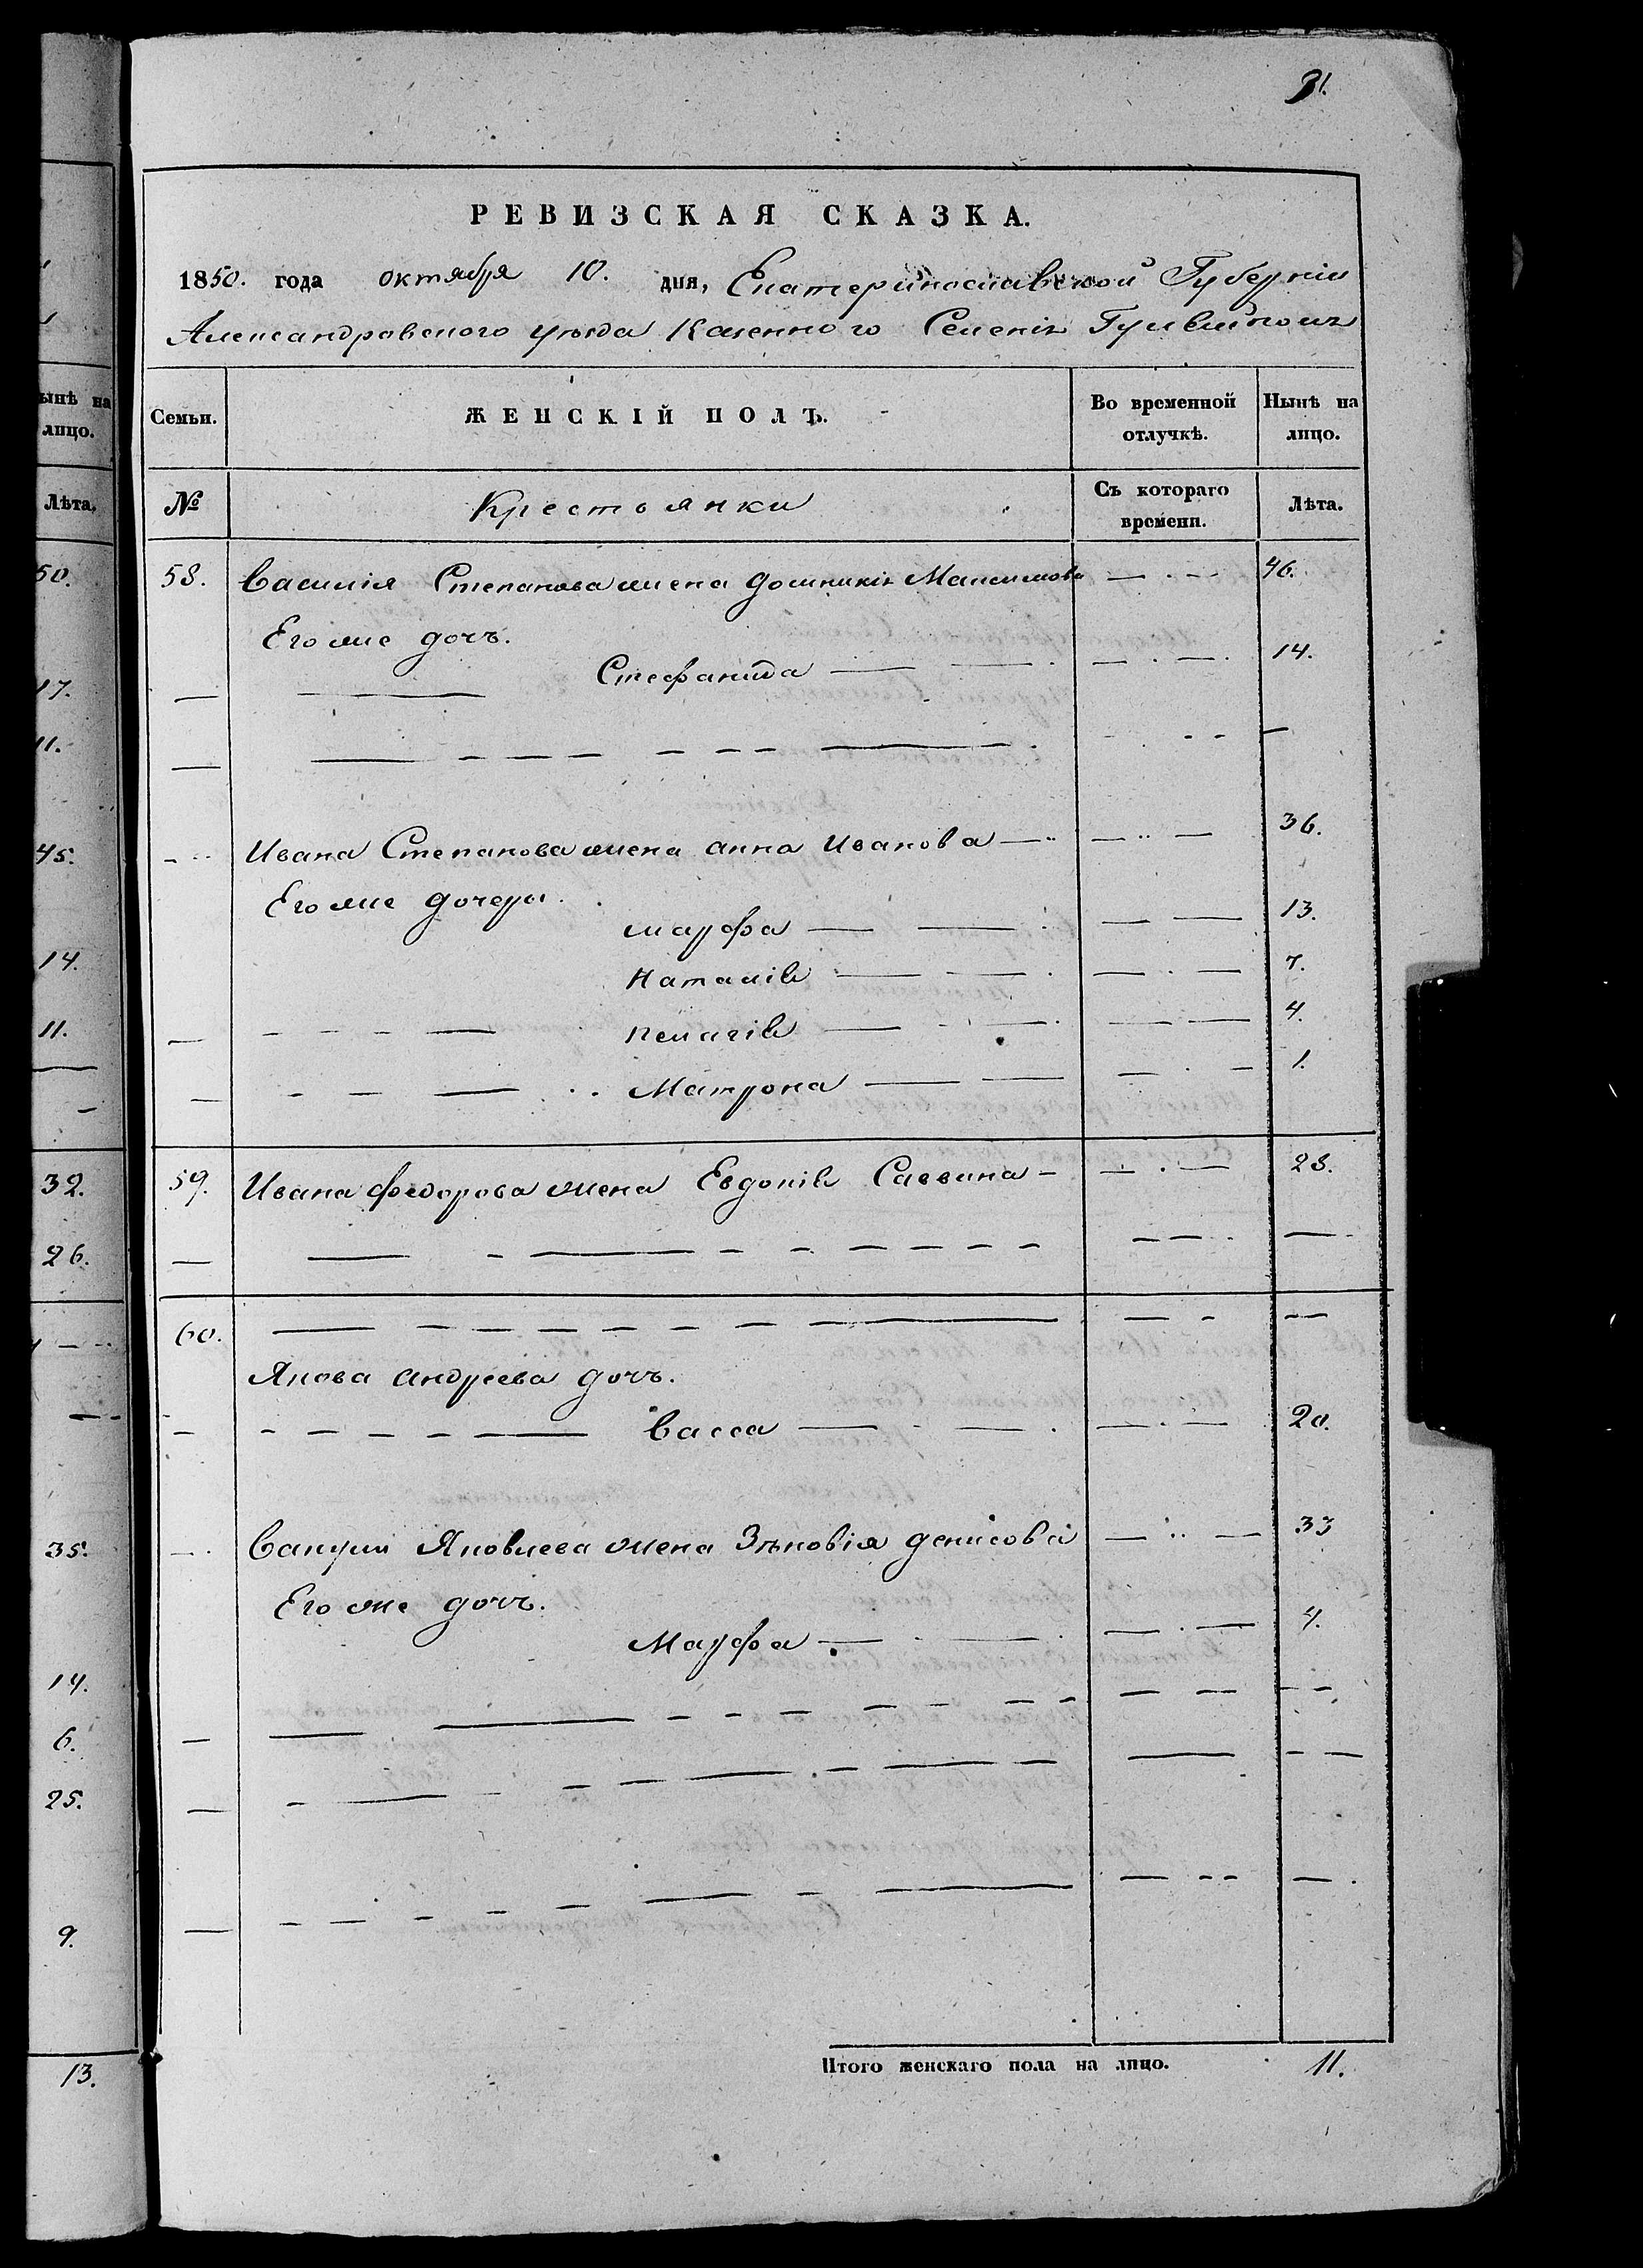 31.
РЕВИЗСКАЯ СКАЗКА.
1850. года октября 10. дня, Екатеринославской Губерніи
Александровского уѣзда Казенного Селенія
ынѣ на лицо.
Лѣта.
50.
17.
11.
45.
14.
11.
32.
26.
35.
14.
6.
25.
9.
13.
Семьи. ЖЕНСКІЙ ПОЛЪ. Во временной отлучкѣ. Нынѣ на лицо.
№ Крестьянки Съ котораго времени. Лѣта.
58. Василія Степанова жена Домникія Максимова — 46.
Его же дочь.
Стефанида — 14.
Ивана Степанова жена анна Иванова — 36.
Его же дочери.
марфа — 13.
Наталія — 7.
пелагія — 4.
Матрона — 1.
59. Ивана федорова жена Евдокія Саввина — 28.
60.
Якова андреева дочь.
васса — 20.
Яковлева жена Зѣновія денисова — 33
Его же дочь.
Марфа — 4.
Итого женскаго пола на лицо. 11.